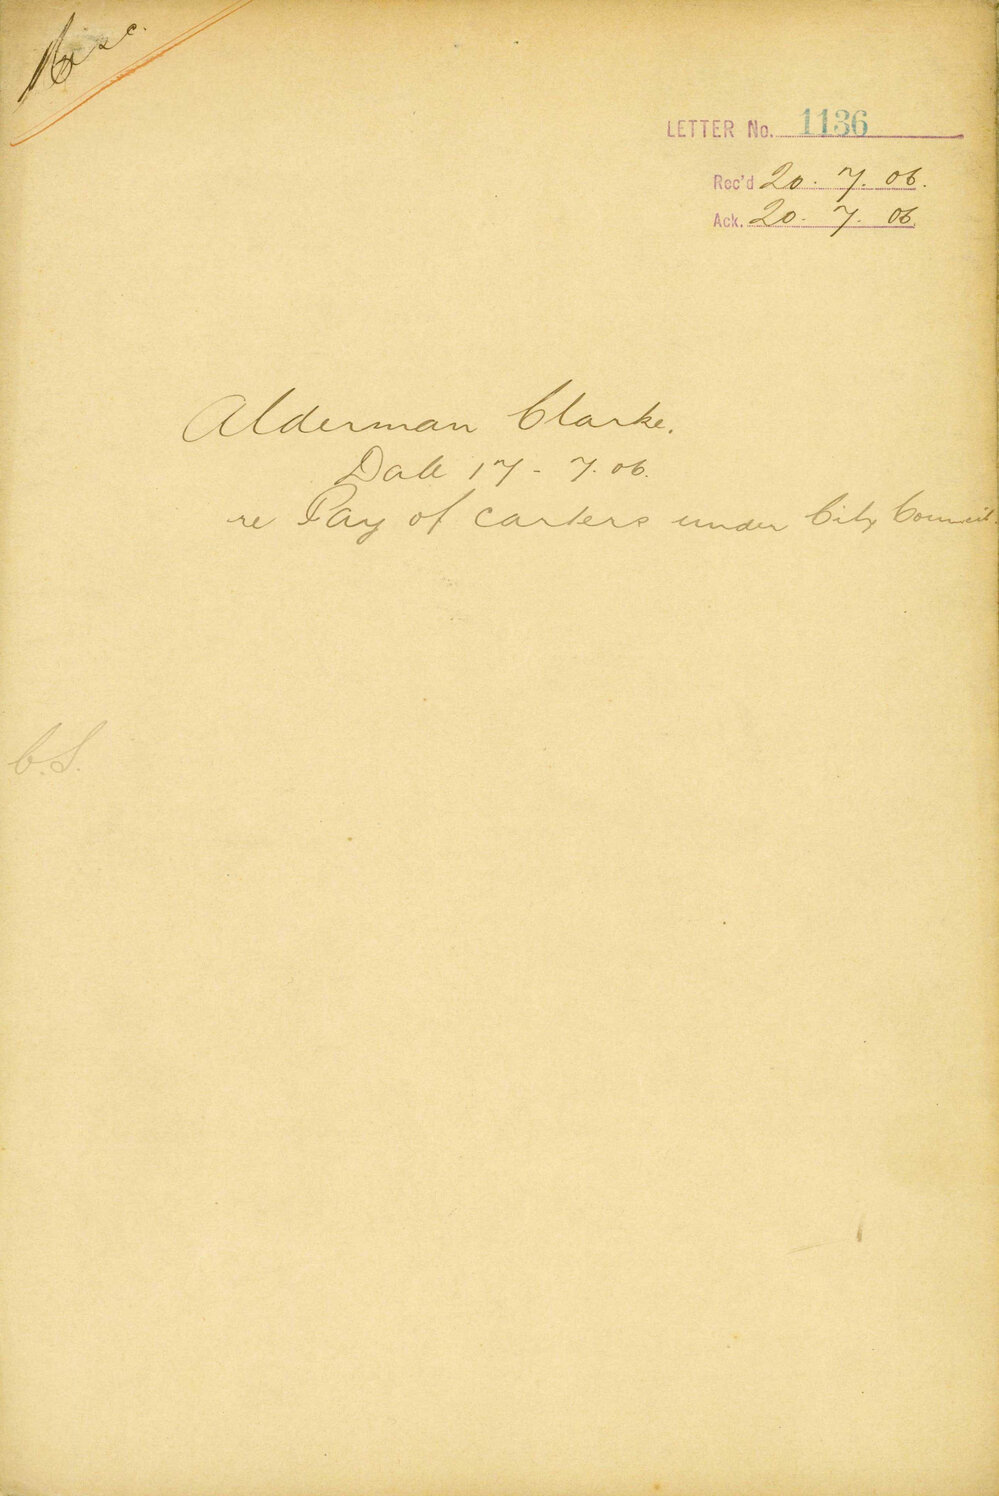 Misc.
LETTER No. 1136
Rec'd 20. 7. 06.
Ack. 20. 7. 06.
Alderman Clarke.
Date 17 - 7. 06.
re Pay of carters under City Council.
C.S.